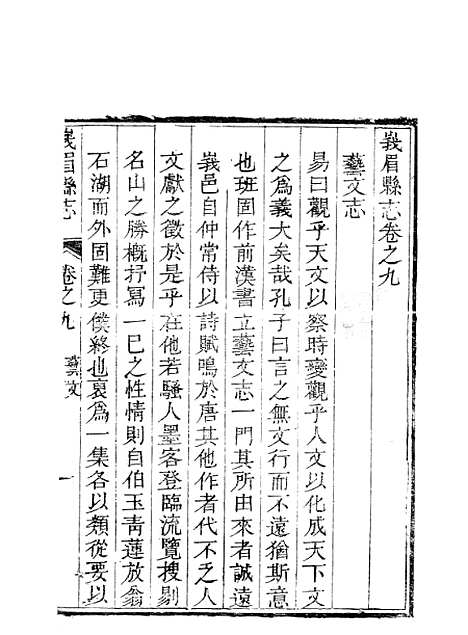 峩眉縣志卷之九
藝文志
易曰觀乎天文以察時變觀乎人文以化成天下文
之爲義大矣哉孔子曰言之無文行而不遠猶斯意
也班固作前漢書立藝文志一門其所由來者誠遠
峩邑自仲常侍以詩賦鳴於唐其他作者代不乏人
文獻之徵於是乎在他若騷人墨客登臨流覽搜剔
名山之勝概抒寫一己之性情則自伯玉靑蓮放翁
石湖而外固難更僕終也裒爲一集各以類從要以
峩眉縣志 卷之九 藝文 一